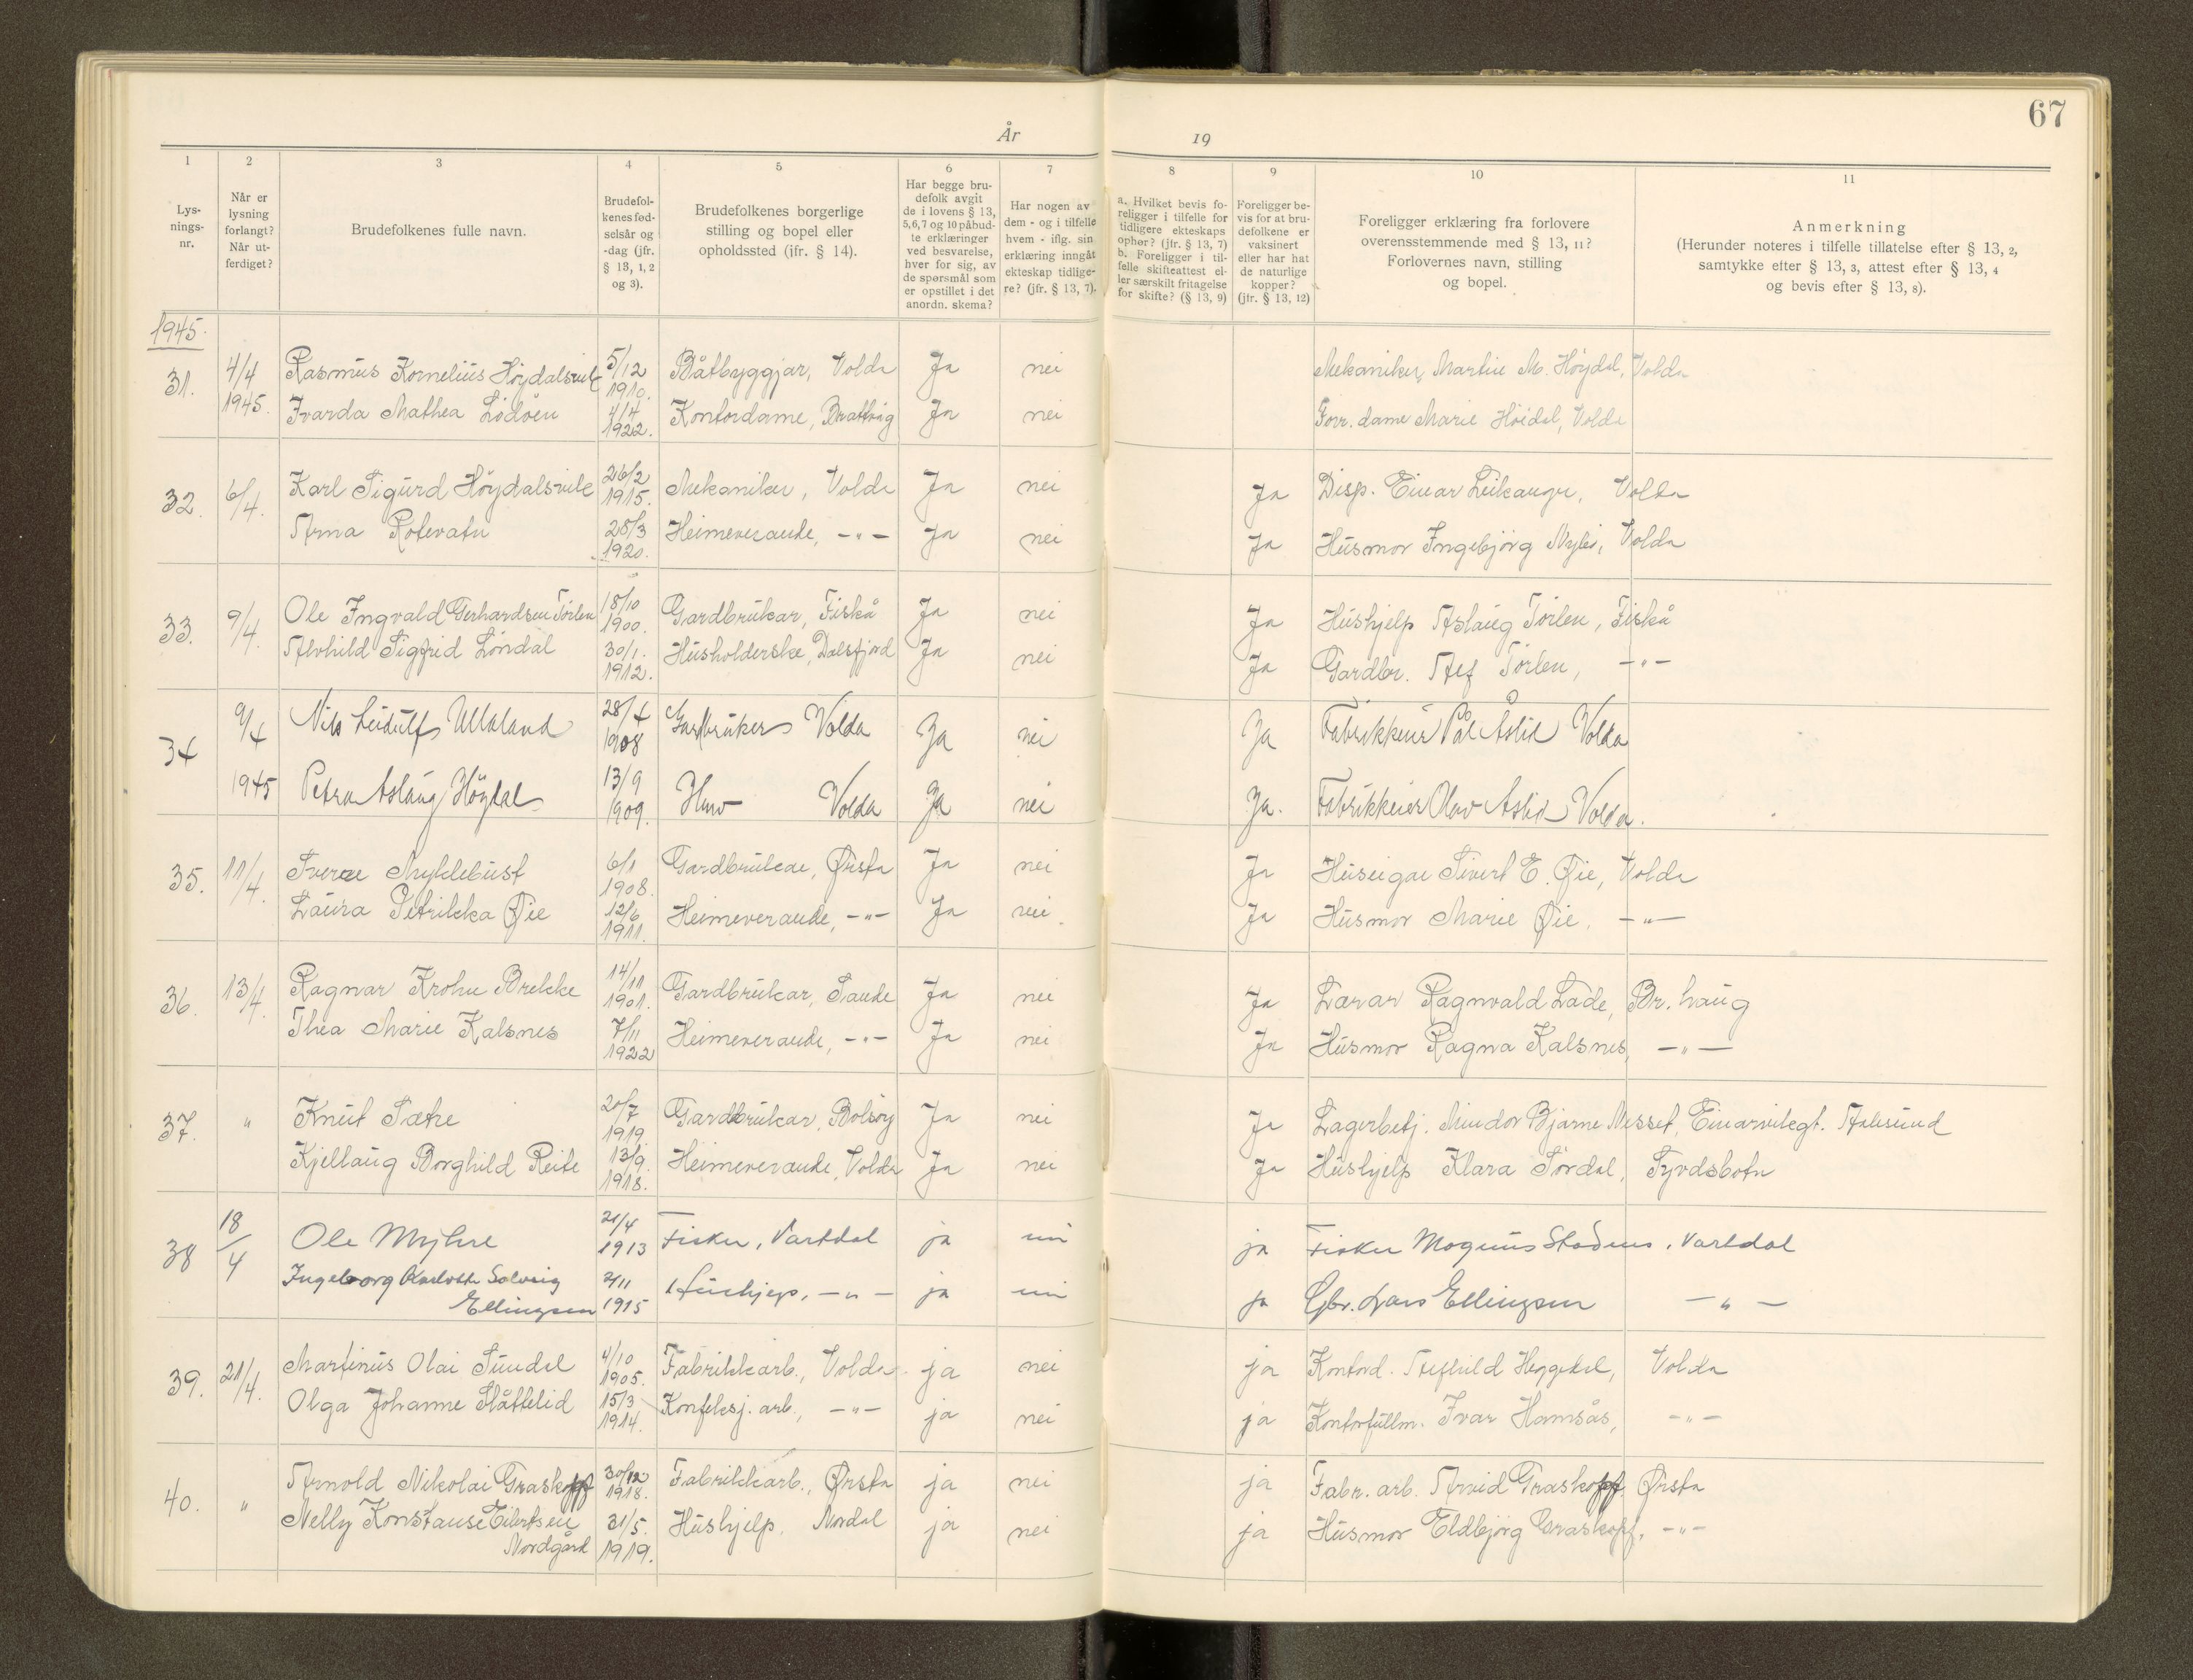 67
År 19
1 2 3 4 5 6 7 8 9 10 11
Lys-
nings-
nr.
Når er
lysning
forlangt?
Når ut-
ferdiget?
Brudefolkenes fulle navn.
Brudefol-
kenes fød-
selsår og
-dag (jfr.
§ 13, 1, 2
og 3).
Brudefolkenes borgerlige
stilling og bopel eller
opholdssted (jfr. § 14).
Har begge bru-
defolk avgit
de i lovens § 13,
5, 6, 7 og 10 påbud-
te erklæringer
ved besvarelse,
hver for sig, av
de spørsmål som
er opstillet i det
anordn. skema?
Har nogen av
dem - og i tilfelle
hvem - iflg. sin
erklæring inngåt
ekteskap tidlige-
re? (jfr. § 13, 7).
a. Hvilket bevis fo-
religger i tilfelle for
tidligere ekteskaps
ophør? (jfr. § 13, 7)
b. Foreligger i til-
felle skifteattest el-
ler særskilt fritagelse
for skifte? (§ 13, 9)
Foreligger be-
vis for at bru-
defolkene er
vaksinert
eller har hat
de naturlige
kopper?
(jfr. § 13, 12)
Foreligger erklæring fra forlovere
overensstemmende med § 13, 11?
Forlovernes navn, stilling
og bopel.
Anmerkning
(Herunder noteres i tilfelle tillatelse efter § 13, 2,
samtykke efter § 13, 3, attest efter § 13, 4
og bevis efter § 13, 8).
1945.
31. 4/4 1945. Rasmus Kornelius Höydalsvik 5/12 1910. Båtbyggjar, Volda Ja nei Mekaniker, Martin M. Höydal, Volda
Ivarda Mathea Lödöen 4/4 1922. Kontordame, Brattvåg Ja nei Forr. dame Marie Höidal, Volda
32. 6/4. Karl Sigurd Höydalsvik 26/2 1915. Mekaniker, Volda Ja nei Ja Disp. Einar Leikanger, Volda
Arna Rotevatn 28/3 1920. Heimeverande, -"- Ja nei Ja Husmor Ingebjörg Nylei, Volda
33. 9/4. Ole Ingvald Gerhardsen Törlen 18/10 1900. Gardbrukar, Fiskå Ja nei Ja Hushjelp Aslaug Törlen, Fiskå
Alvhild Sigfrid Löndal 30/1. 1912. Husholderske, Dalsfjord Ja nei Ja Gardbr. Alf Törlen, -"-
34 9/4 1945 Nils Leidulf Ulleland 28/4 1908 Gardbruker Volda Ja nei Ja Fabrikkeier Pål Åslid Volda
Petra Aslaug Höydal 13/9 1909. Volda Ja nei Ja. Fabrikkeier Olav Aslid Volda.
35. 11/4. Sverre Myklebust 6/1 1908. Gardbrukar, Ørsta Ja nei Ja Huseigar Sivert E. Øie, Volda
Laura Petrikka Øie 12/6 1911. Heimeverande, -"- Ja nei Ja Husmor Marie Øie, -"-
36. 13/4. Ragnar Krohn Brekke 14/11 1901. Gardbrukar, Sande Ja nei Ja Lærar Ragnvald Lade, Br. haug
Thea Marie Kalsnes 7/11 1922 Heimeverande, -"- Ja nei Ja Husmor Ragna Kalsnes, -"-
37. " Knut Sætre 20/7 1919. Gardbrukar, Bolsöy Ja nei Ja Lagerbetj. Mindor Bjarne Nesset, Einarvikegt. Ålesund
Kjellaug Borghild Reite 13/9. 1918. Heimeverande, Volda Ja nei Ja Hushjelp Klara Sördal, Syvdsbotn
38 18/4 Ole Myhre 21/4 1913 Fisker, Vartdal ja nei ja Fisker Magnus Stadsnes, Vartdal
Ingeborg Karlotte Solveig
Ellingsen 2/11 1915 Hushjelp, -"- ja nei ja Gbr. Lars Ellingsen -"-
39. 21/4. Martinus Olai Sundal 4/10 1905. Fabrikkarb., Volda. ja nei ja Kontord. Alfhild Heggdal, Volda
Olga Johanne Slåttelid 15/3 1914. Konfeksj. arb., -"- ja nei ja Kontorfullm. Ivar Hamsås, -"-
40. " Arnold Nikolai Graskopf 30/12 1918. Fabrikkarb., Ørsta ja nei ja Fabr. arb. Arvid Graskopf Ørsta
Nelly Konstanse Eilertsen
Nordgård 31/5. 1919. Hushjelp, Nordal ja nei ja Husmor Eldbjörg Graskopf, -"-